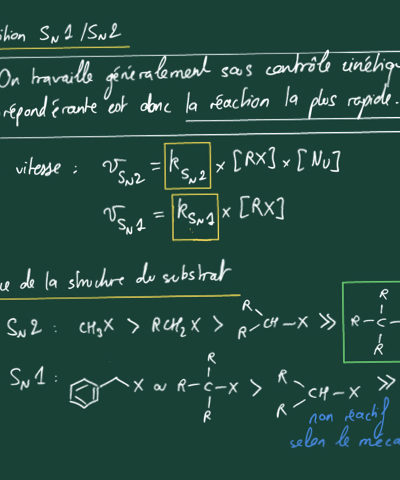 ition SN1/SN2
On travaille généralement sous contrôle cinétiqu
répondérante est donc la réaction la plus rapide.
vitesse : vSN2 = kSN2 × [RX] × [Nu]
vSN1 = kSN1 × [RX]
ue de la structure du substrat
SN2 : CH3X > RCH2X > R R CH-X >> R R-C- R
SN1 : X ou R R-C-X R > R R CH-X >>
non réactif
selon le méca